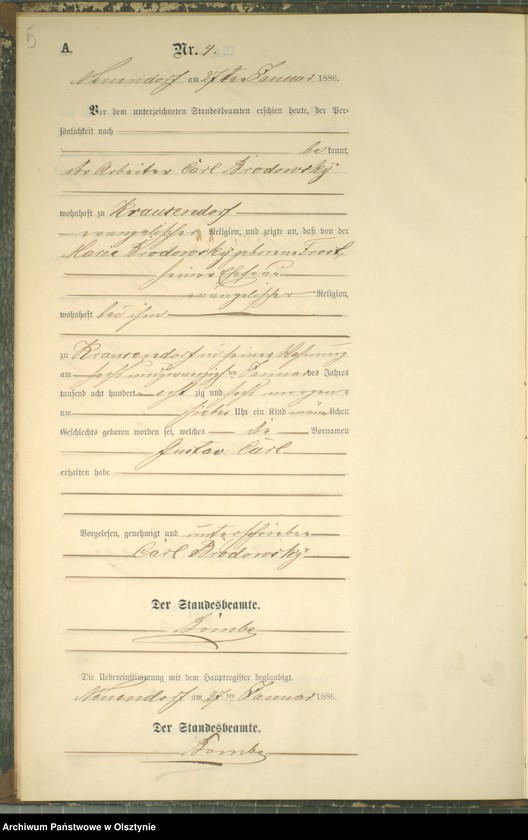 5
A.
Nr. 4.
Neuendorf am 27ten Januar 1886.
Vor dem unterzeichneten Standesbeamten erschien heute, der Per-
sönlichkeit nach
be kannt,
der Arbeiter Carl Brodowsky
wohnhaft zu Krausendorf
evangelischer Religion, und zeigte an, daß von der
Marie Brodowsky geborene Trost,
seiner Ehefrau
evangelischer Religion,
wohnhaft bei ihm
zu Krausendorf in seiner Wohnung
am sechs und zwanzigsten Januar des Jahres
tausend acht hundert acht zig und sechs morgens
um sieben Uhr ein Kind männlichen
Geschlechts geboren worden sei, welches die Vornamen
Gustav Carl
erhalten habe
Vorgelesen, genehmigt und unterschrieben
Carl Brodowsky
Der Standesbeamte.
Die Uebereinstimmung mit dem Hauptregister beglaubigt.
Neuendorf am 27ten Januar 1886.
Der Standesbeamte.
Archiwum Państwowe w Olsztynie